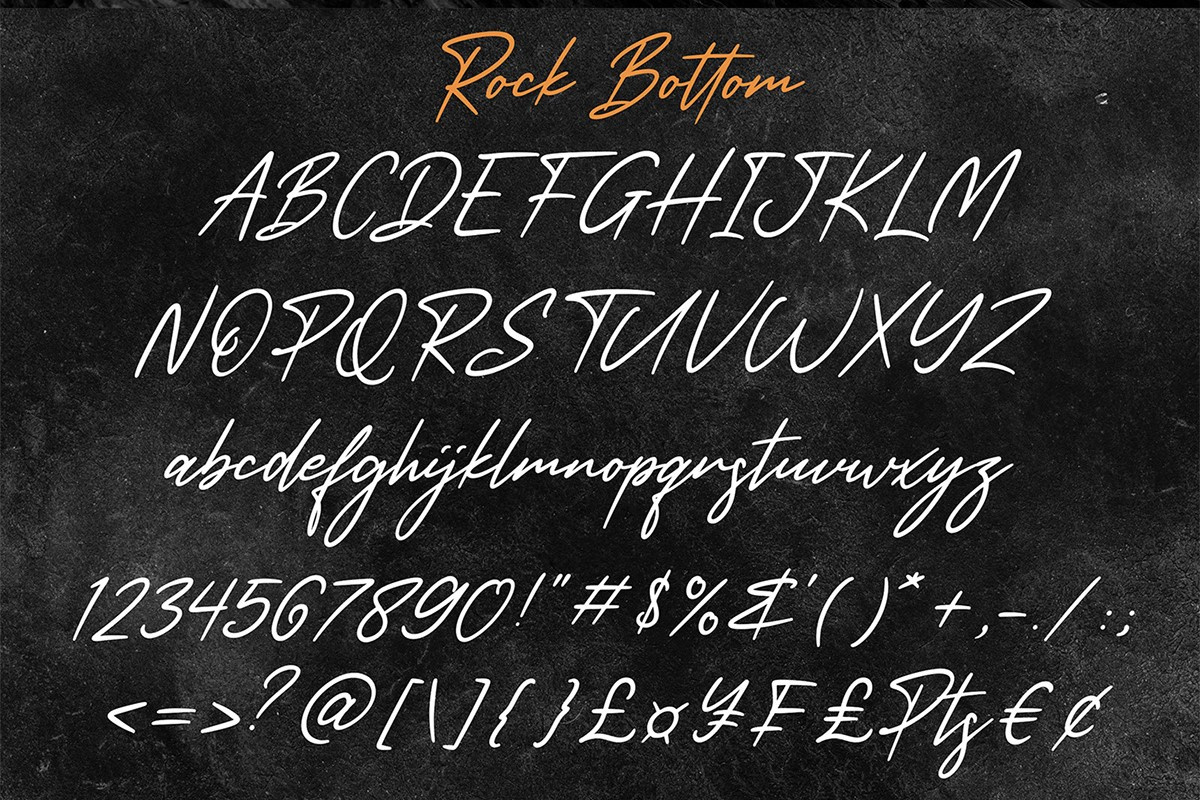 Rock Bottom
ABCDEFGHIJKLM
NOPQRSTUVWXYZ
abcdefghijklmnopqrstuvwxyz
1234567890!"#$%&'()*+,-./:;
<=>?@[\]{}£¤¥₣₤₧€¢